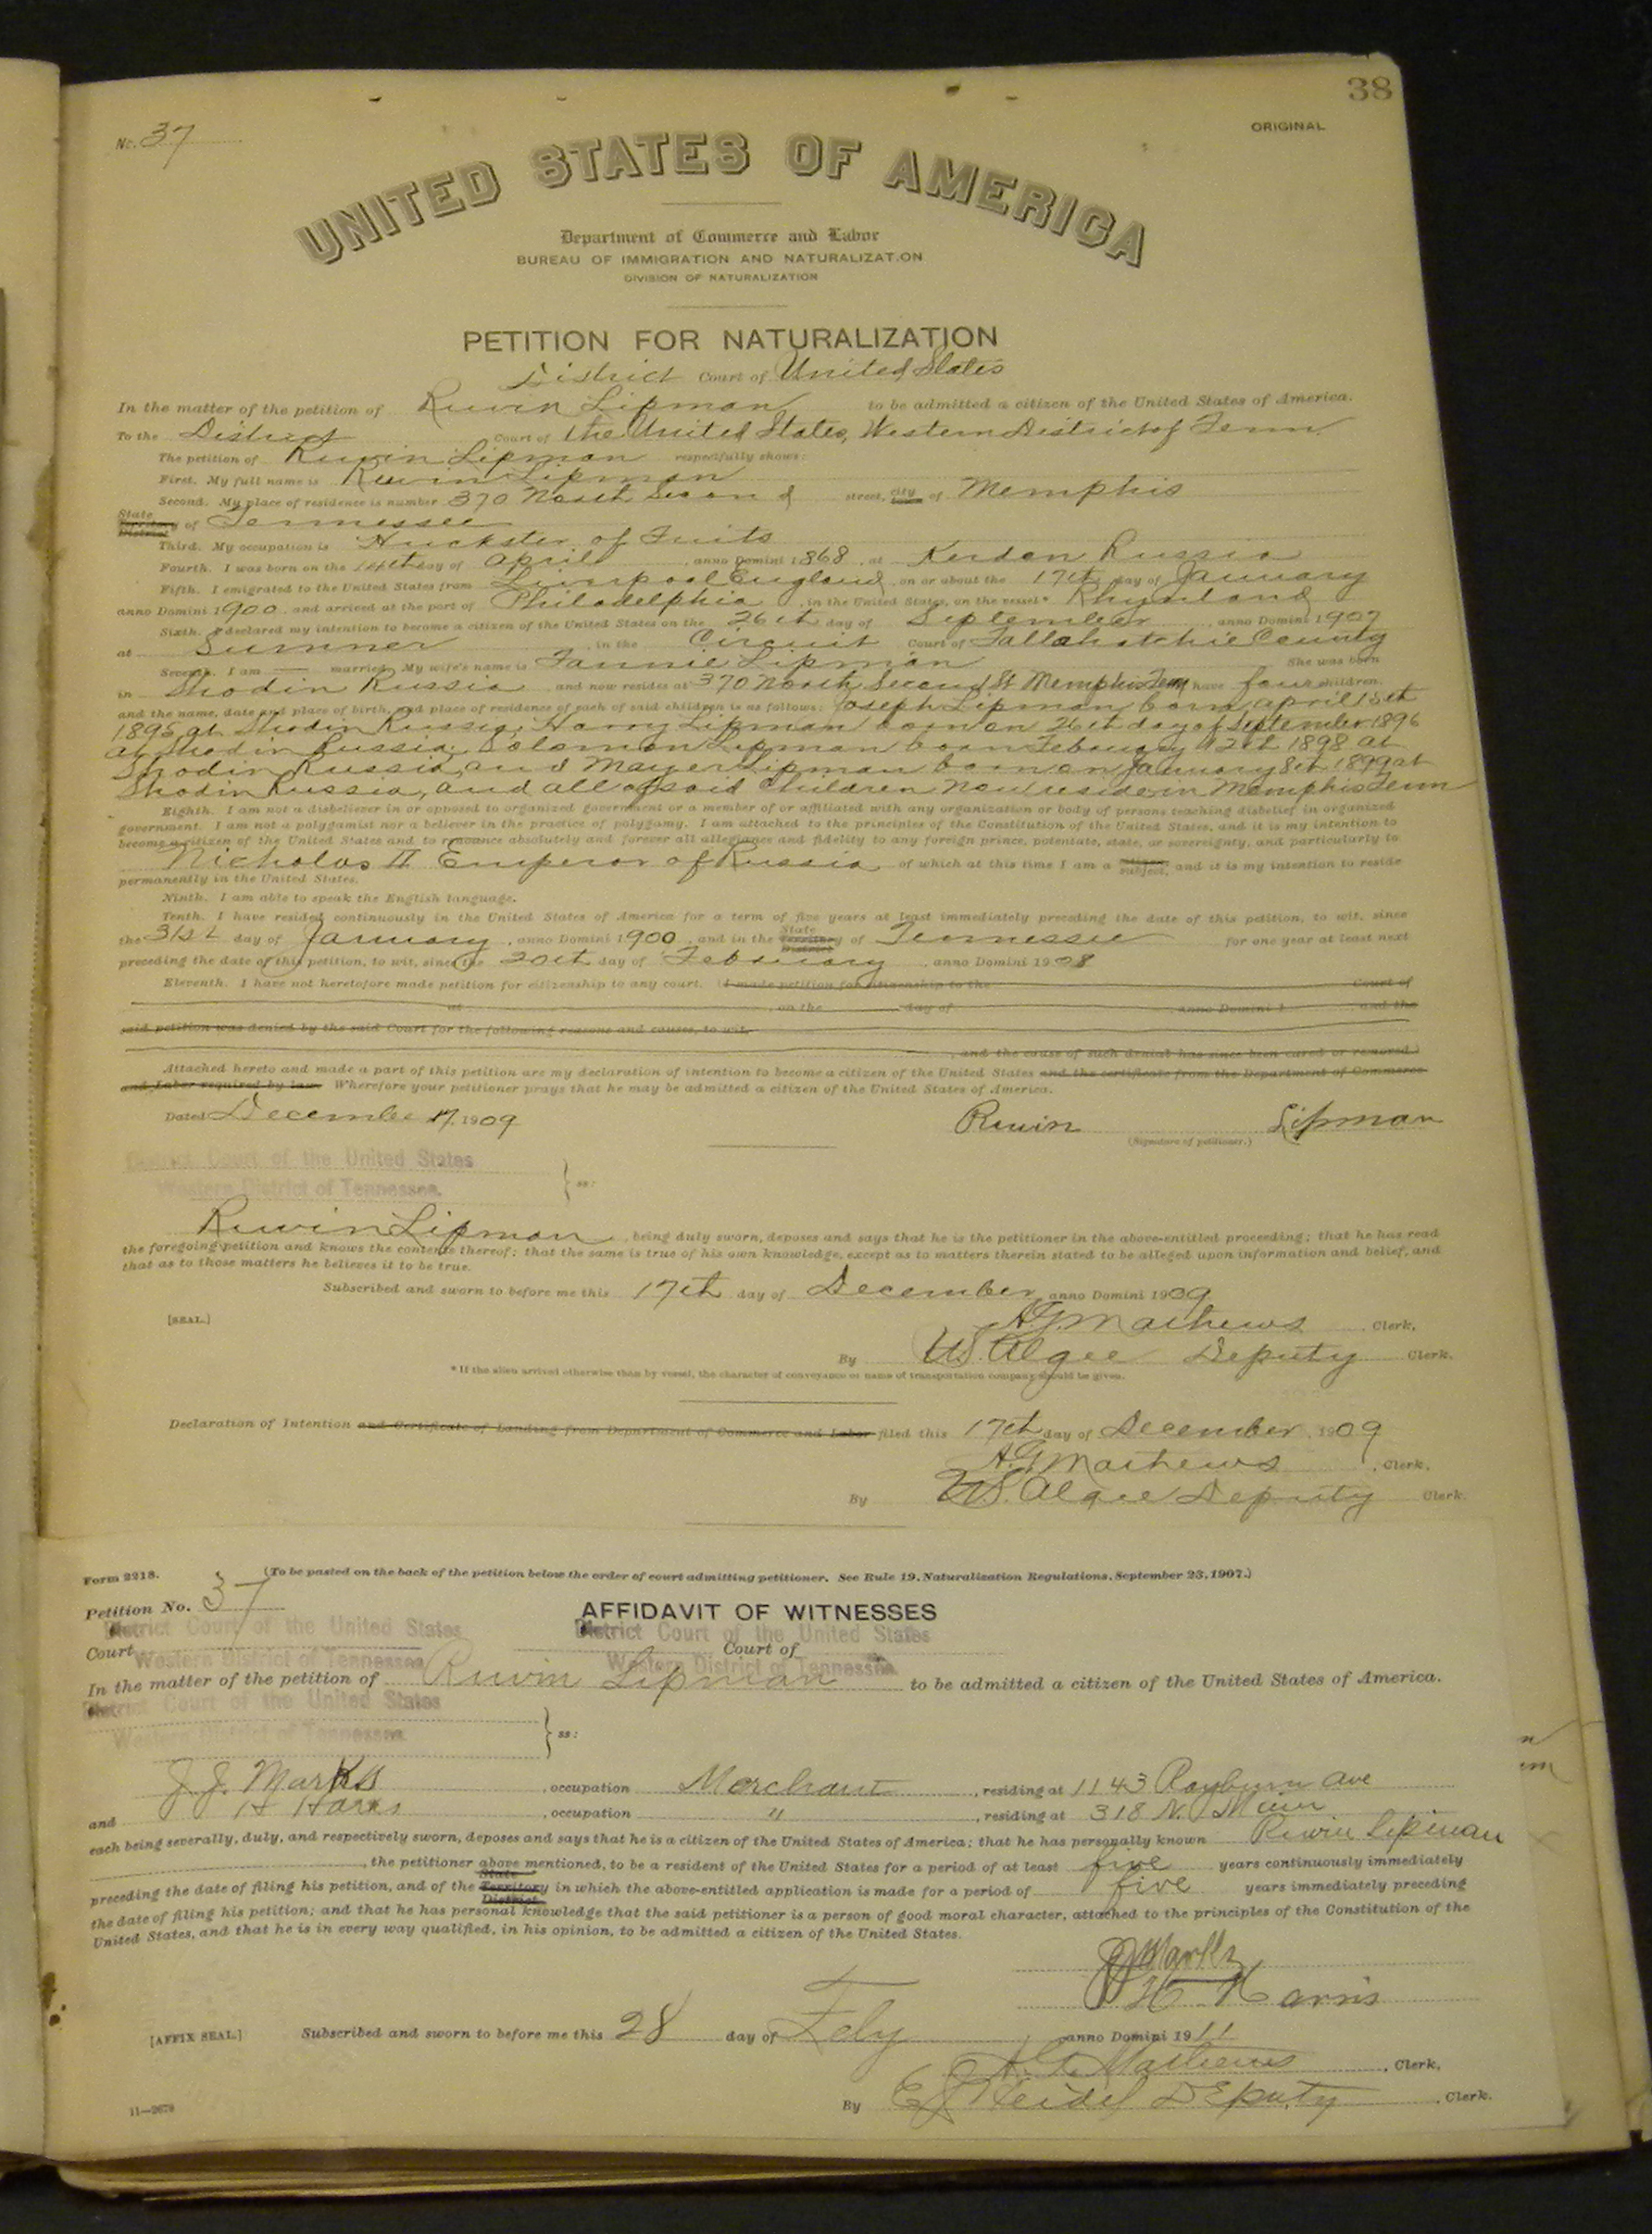 38
No. 37
ORIGINAL
UNITED STATES OF AMERICA
Department of Commerce and Labor
BUREAU OF IMMIGRATION AND NATURALIZATION
DIVISION OF NATURALIZATION
PETITION FOR NATURALIZATION
District Court of United States
In the matter of the petition of Ruvin Lipman to be admitted a citizen of the United States of America.
To the District Court of the United States, Western District of Tenn
The petition of Ruvin Lipman respectfully shows:
First. My full name is Ruvin Lipman
Second. My place of residence is number 370 North Second street, city of Memphis
State Territory District of Tennessee
Third. My occupation is Huckster of Fruits
Fourth. I was born on the day of April, anno Domini 1868, at Kurdan Russia
Fifth. I emigrated to the United States from Liverpool England, on or about the 17th day of January
anno Domini 1900, and arrived at the port of Philadelphia, in the United States, on the vessel* Rhynland
Sixth. I declared my intention to become a citizen of the United States on the 26th day of September, anno Domini 1907
at Sumner, in the Circuit Court of Tallahatchie County
Seventh. I am — married. My wife's name is Fannie Lipman She was born
in Shodin Russia and now resides at 370 North Second St Memphis Tenn I have four children,
and the name, date and place of birth, and place of residence of each of said children is as follows: Joseph Lipman born April
at Shodin Russia; Harry Lipman born on 26th day of September 1896
at Shodin Russia; Solomon Lipman born February 12th 1898 at
Shodin Russia, and Mayer Lipman born on January 8th 1899 at
Shodin Russia, and all of said children now reside in Memphis Tenn
Eighth. I am not a disbeliever in or opposed to organized government or a member of or affiliated with any organization or body of persons teaching disbelief in organized
government. I am not a polygamist nor a believer in the practice of polygamy. I am attached to the principles of the Constitution of the United States, and it is my intention to
become a citizen of the United States and to renounce absolutely and forever all allegiance and fidelity to any foreign prince, potentate, state, or sovereignty, and particularly to
Nicholas II Emperor of Russia of which at this time I am a subject, and it is my intention to reside
permanently in the United States.
Ninth. I am able to speak the English language.
Tenth. I have resided continuously in the United States of America for a term of five years at least immediately preceding the date of this petition, to wit, since
the 31st day of January, anno Domini 1900, and in the State Territory District of Tennessee for one year at least next
preceding the date of this petition, to wit, since the 20th day of February, anno Domini 1908
Eleventh. I have not heretofore made petition for citizenship to any court. (I made petition for citizenship to the Court of
at, on the day of, anno Domini 1 and the
said petition was denied by the said Court for the following reasons and causes, to wit,
, and the cause of such denial has since been cured or removed.)
Attached hereto and made a part of this petition are my declaration of intention to become a citizen of the United States and the certificate from the Department of Commerce
and Labor required by law. Wherefore your petitioner prays that he may be admitted a citizen of the United States of America.
Dated December 17, 1909
Ruvin Lipman
(Signature of petitioner.)
District Court of the United States
Western District of Tennessee.
ss:
Ruvin Lipman, being duly sworn, deposes and says that he is the petitioner in the above-entitled proceeding; that he has read
the foregoing petition and knows the contents thereof; that the same is true of his own knowledge, except as to matters therein stated to be alleged upon information and belief, and
that as to those matters he believes it to be true.
Subscribed and sworn to before me this 17th day of December, anno Domini 1909
[SEAL.]
A.G. Mathews Clerk.
By W.S. Algee Deputy Clerk.
* If the alien arrived otherwise than by vessel, the character of conveyance or name of transportation company should be given.
Declaration of Intention and Certificate of Landing from Department of Commerce and Labor filed this 17th day of December, 1909
A.G. Mathews, Clerk.
By W.S. Algee Deputy Clerk.
Form 2218.
(To be pasted on the back of the petition below the order of court admitting petitioner. See Rule 19, Naturalization Regulations, September 23, 1907.)
Petition No. 37
AFFIDAVIT OF WITNESSES
District Court of the United States
Western District of Tennessee
Court
District Court of the United States
Court of
Western District of Tennessee
In the matter of the petition of Ruvin Lipman to be admitted a citizen of the United States of America.
District Court of the United States
Western District of Tennessee
ss:
J.J. Marks, occupation Merchant, residing at 1143 Rayburn Ave
and H Harris, occupation ", residing at 318 N. Main
each being severally, duly, and respectively sworn, deposes and says that he is a citizen of the United States of America; that he has personally known Ruvin Lipman
, the petitioner above mentioned, to be a resident of the United States for a period of at least five years continuously immediately
preceding the date of filing his petition, and of the State Territory District in which the above-entitled application is made for a period of five years immediately preceding
the date of filing his petition; and that he has personal knowledge that the said petitioner is a person of good moral character, attached to the principles of the Constitution of the
United States, and that he is in every way qualified, in his opinion, to be admitted a citizen of the United States.
JJ Marks
H Harris
[AFFIX SEAL.] Subscribed and sworn to before me this 28 day of Feby anno Domini 1911
A.G. Mathews, Clerk.
By Deputy, Clerk.
11—2678